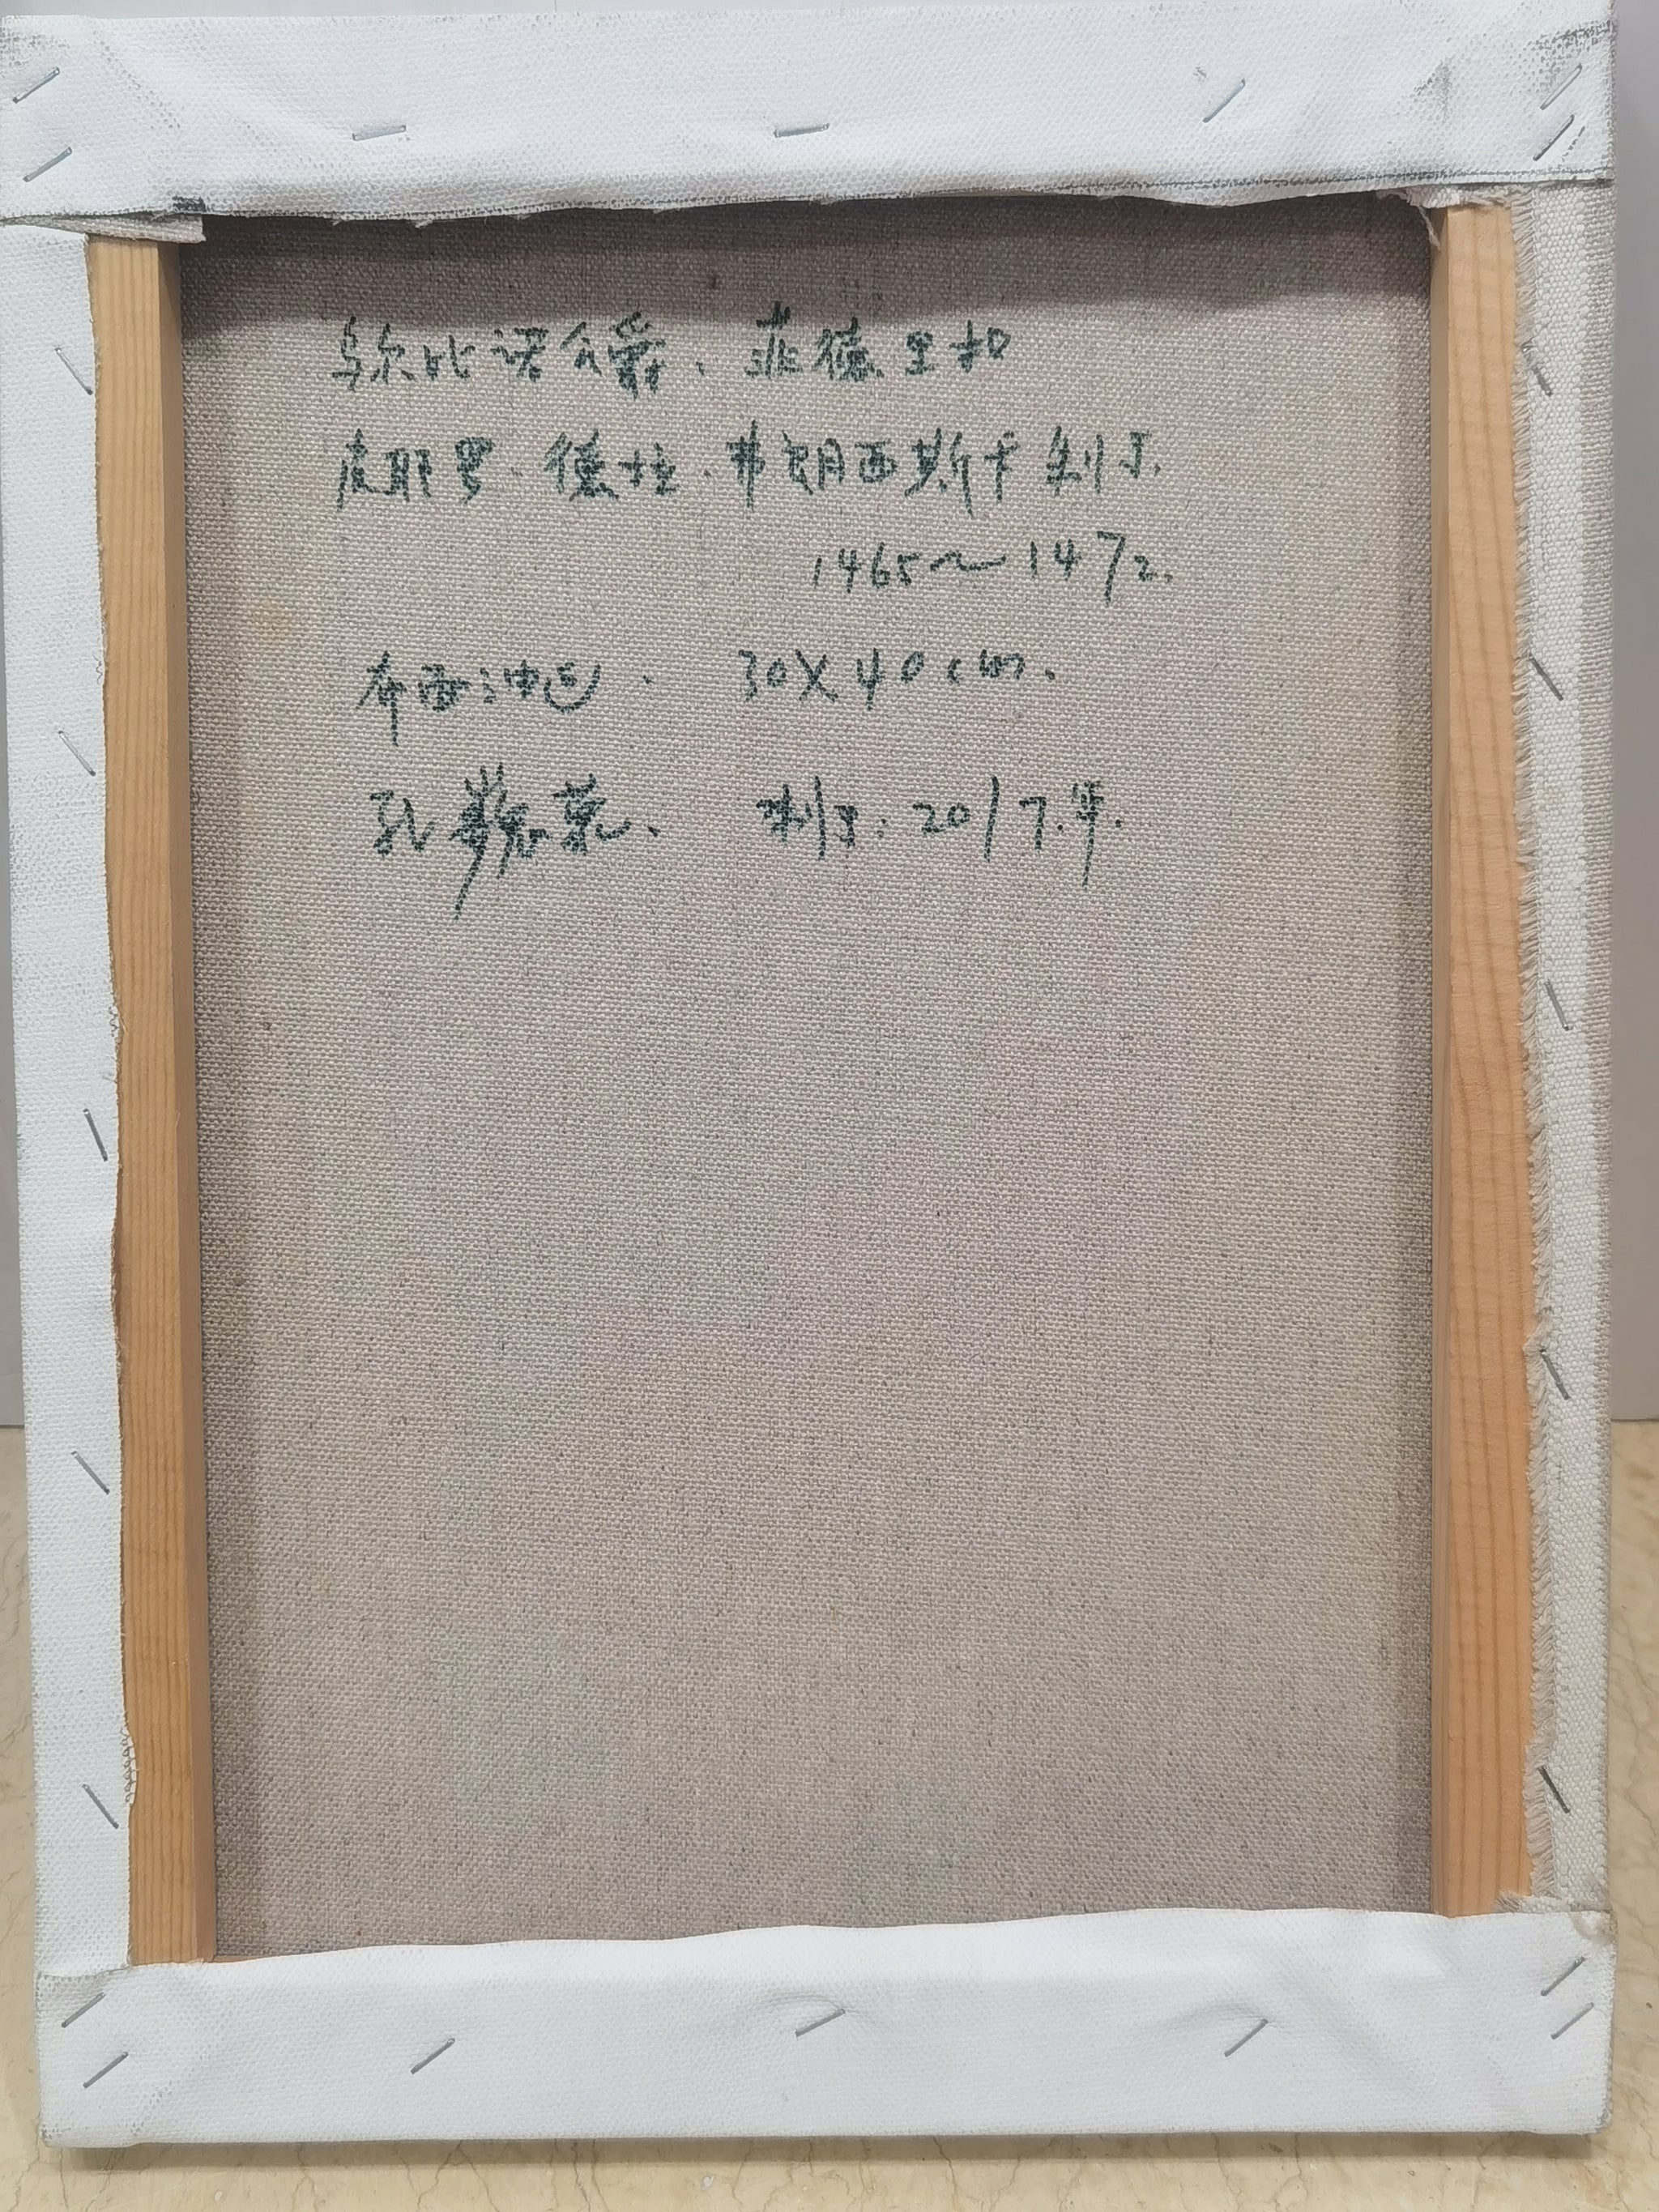 乌尔比诺公爵、菲德里柯
皮耶罗·德拉·弗朗西斯卡制于
1465~1472.
布面油色. 30X40cm.
孔 荣、 制于:2017.年.